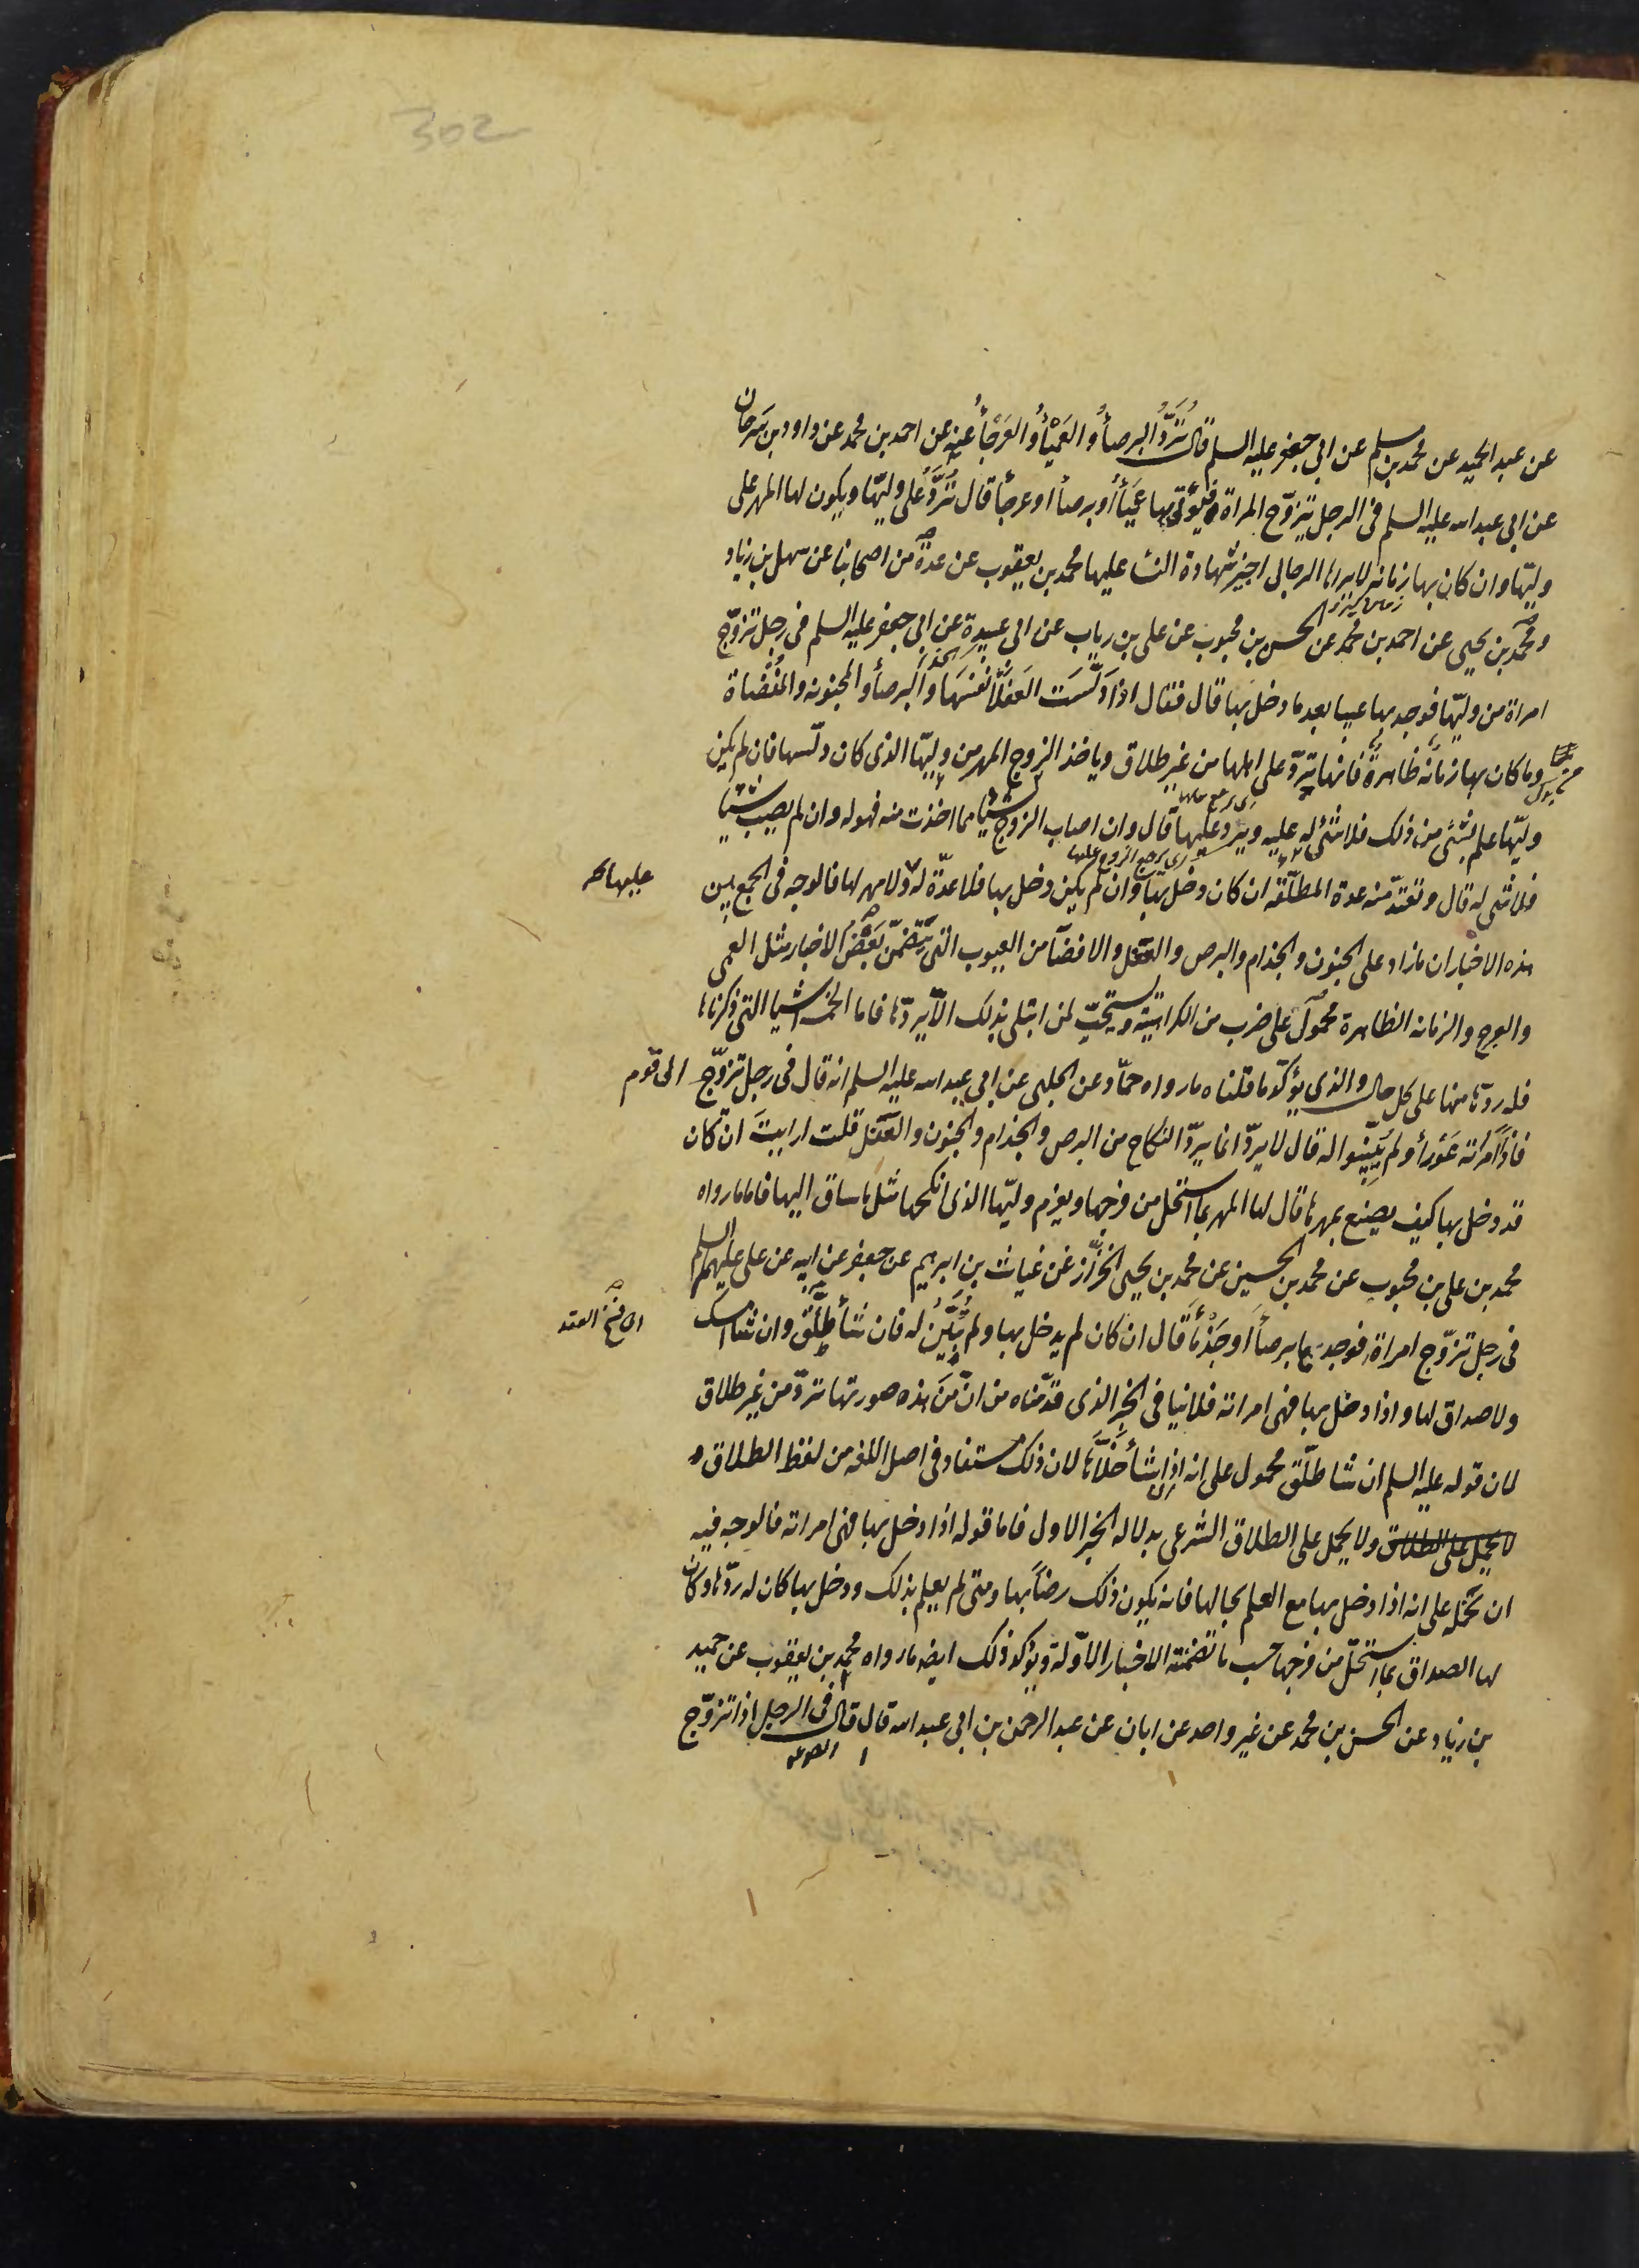 302
عن عبد الحميد عن محمد بن مسلم عن ابي جعفر عليه السلم قال تُرَدُّ البرصأُ والعَمْيأُ والعَرْجأُ عنه عن احمد بن محمد عن داود بن سَرحان
عن ابي عبد الله عليه السلم في الرجل يتزوّج المراة فيؤتى بها عَمْيَأ أو برصأ او عرجأ قال تُرَدُّ على وليّها ويكون لها المهر على
وليّها وان كان بها زمانه لا يراها الرجال اجيز شهادة النسا عليها محمد بن يعقوب عن عدة من اصحابنا عن سهل بن زياد
ومحمد بن يحيى عن احمد بن محمد عن الحسن بن محبوب عن على بن رياب عن ابي عبيدة عن ابي جعفر عليه السلم في رجل تزوّج
امراة من وليّها فوجد بها عيبا بعد ما دخل بها قال فقال اذا دَلَّسَت العَفلأُ نفسَها والبرصأ والمجنونه والمُفْضاة
وما كان بها زمانه ظاهرة فانها تردّ على اهلها من غير طلاق وياخذ الزوج المهر من وليّها الذى كان دلّسها فان لم يكن
وليّها علم بشئ من ذلك فلا شئ له عليه ويرد عليها قال وان اصاب الزوج شيئا مما اخذت منه فهو له وان لم يصب شيئا
فلا شى له قال وتعتدّ منه عدة المطلّقه ان كان دخل بها وان لم يكن دخل بها فلا عدّة له ولا مهر لها فالوجه في الجمع بين
عليها
هذه الاخبار ان ما زاد على الجنون والجذام والبرص والعفل والافضآ من العيوب التى يتضمّن بَعْضُ الاخبار مثل العمى
والعرج والزمانه الظاهرة محمول على ضرب من الكراهيّة ويستحبّ لمن ابتلى بذلك الّا يردّها فاما الخمسه اشيا التي ذكرناها
فله ردّها منها على كل حال والذى يؤكّد ما قلناه ما رواه حمّاد عن الحلبى عن ابي عبد الله عليه السلم انه قال في رجل تزوّج الى قوم
فاذا امراته عَورأ ولم يُبيّنوا له قال لا يردّ انما يردّ النكاح من البرص والجذام والجنون والعَفل قلت ارايت ان كان
قد دخل بها كيف يصنع بمهرها قال لها المهر بما استحلّ من فرجها ويغرم وليّها الذى انكحها مثل ما ساق اليها فاما ما رواه
محمد بن على بن محبوب عن محمد بن الحسين عن محمد بن يحيى الخزّاز عن غياث بن ابرهيم عن جعفر عن ابيه عن على عليهم السلم
في رجل تزوّج امراة فوجدها برصأ او جَذْمأ قال ان كان لم يدخل بها ولم يُبَيَّن له فان شأ طلّق وان شا امسك
اى فسخ العقد
ولا صداق لها واذا دخل بها فهى امراته فلا ينافى الخبر الذى قدّمناه من انّ مَن هذه صورتها تردّ من غير طلاق
لان قوله عليه السلم ان شا طلّق محمول على انه ان شأ خلّاها لان ذلك مستفاد في اصل اللغه من لفظ الطلاق و
لا يحمل على الطلاق ولا يحمل على الطلاق الشرعى بدلاله الخبر الاول فاما قوله اذا دخل بها فهى امراته فالوجه فيه
ان نحمله على انه اذا دخل بها مع العلم بحالها فانه يكون ذلك رضأ بها ومتى لم يعلم بذلك ودخل بها كان له ردّها وكان
لها الصداق بما استحلّ من فرجها حسب ما تضمنته الاخبار الاوّلة ويؤكد ذلك ايضه ما رواه محمد بن يعقوب عن حميد
بن زياد عن الحسن بن محمد عن غير واحد عن ابان عن عبد الرحمن بن ابي عبد الله قال قال في الرجل اذا تزوّج